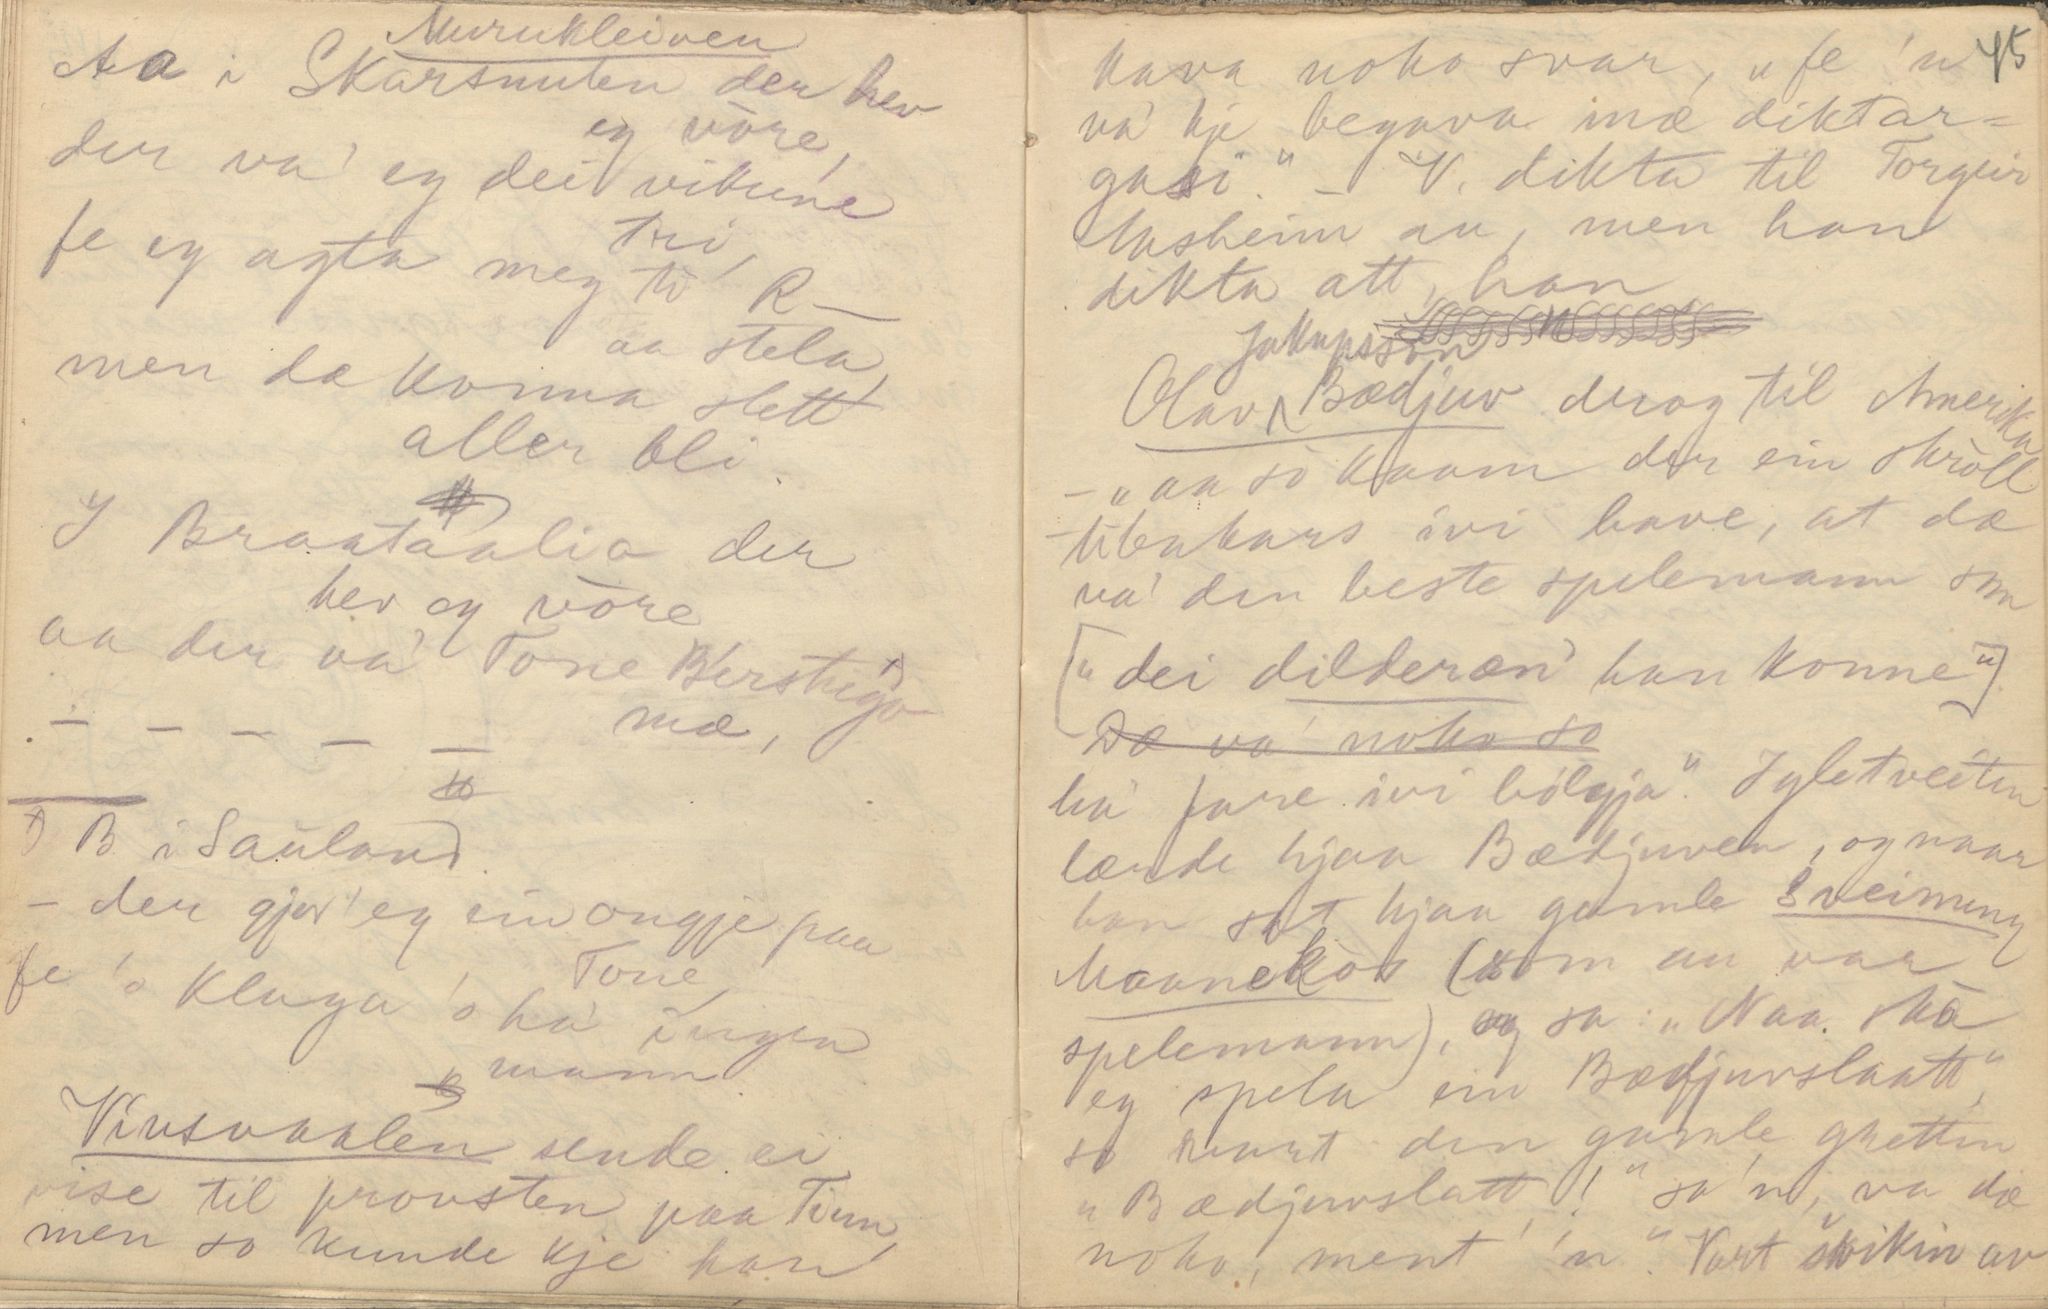 Murukleiven
Aa i Skarsnuten der hev
eg vòre,
der va' eg dei vikune
tri,
fe eg agta meg ti R—
aa stela,
men dæ konna slett
aller bli
I Braataalio der
hev eg vòre
aa der va' Tone Bierstigo *)
mæ,
— — — — —
*) B. i Sauland
– der gjor' eg ein ongje paa
Tone,
fe 'o klaga 'o ha' ingen
mann
Vinsvaalen sende ei
vise til provsten paa Tinn,
men so kunde kje han
45
kava noko svar, „fe 'n
va' kje begava mæ diktar=
gasi." – V. dikta til Torgeir
Aasheim au, men han
dikta att, han
Jakupsson
Olav Bædjuv drog til Amerika
– „aa so kaam der ein skröll
tibakars ivi have, at dæ
va' den beste spelemann som
[„dei dilderæn' han konne"]
Dæ va' noko so
ha' fare ivi bòlgja". Igletveiten
lærde hjaa Bædjuven, og naar
han sat hjaa gamle Sveinung
Maanekòs (som au var
spelemann), og sa: „Naa ska
eg spela ein Bædjuvslaatt,"
so vart den gamle gretten
„Bædjuvslatt! " sa 'n, va dæ
noko, ment' 'n". Vart svikin av